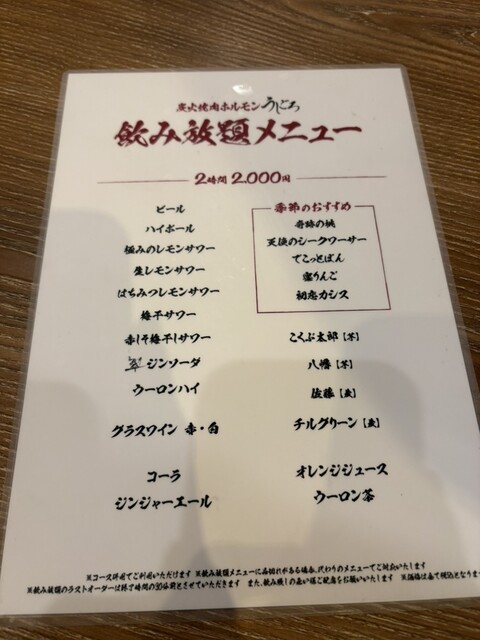 炭火焼肉ホルモン うしごろ
飲み放題メニュー
2時間 2,000円
ビール
ハイボール
極みのレモンサワー
生レモンサワー
はちみつレモンサワー
梅干サワー
赤しそ梅干しサワー
翠 ジンソーダ
ウーロンハイ
グラスワイン 赤・白
コーラ
ジンジャーエール
季節のおすすめ
奇跡の桃
天使のシークワーサー
でこっとぽん
蜜りんご
初恋カシス
こくぶ太郎【芋】
八幡【芋】
佐藤【麦】
チルグリーン【麦】
オレンジジュース
ウーロン茶
※コース併用でご利用いただけます ※飲み放題メニューに品切れがある場合、代わりのメニューでご対応いたします
※飲み放題のラストオーダーは終了時間の30分前とさせていただきます また、飲み残しの無い様ご配慮をお願いいたします ※価格は全て税込となりま